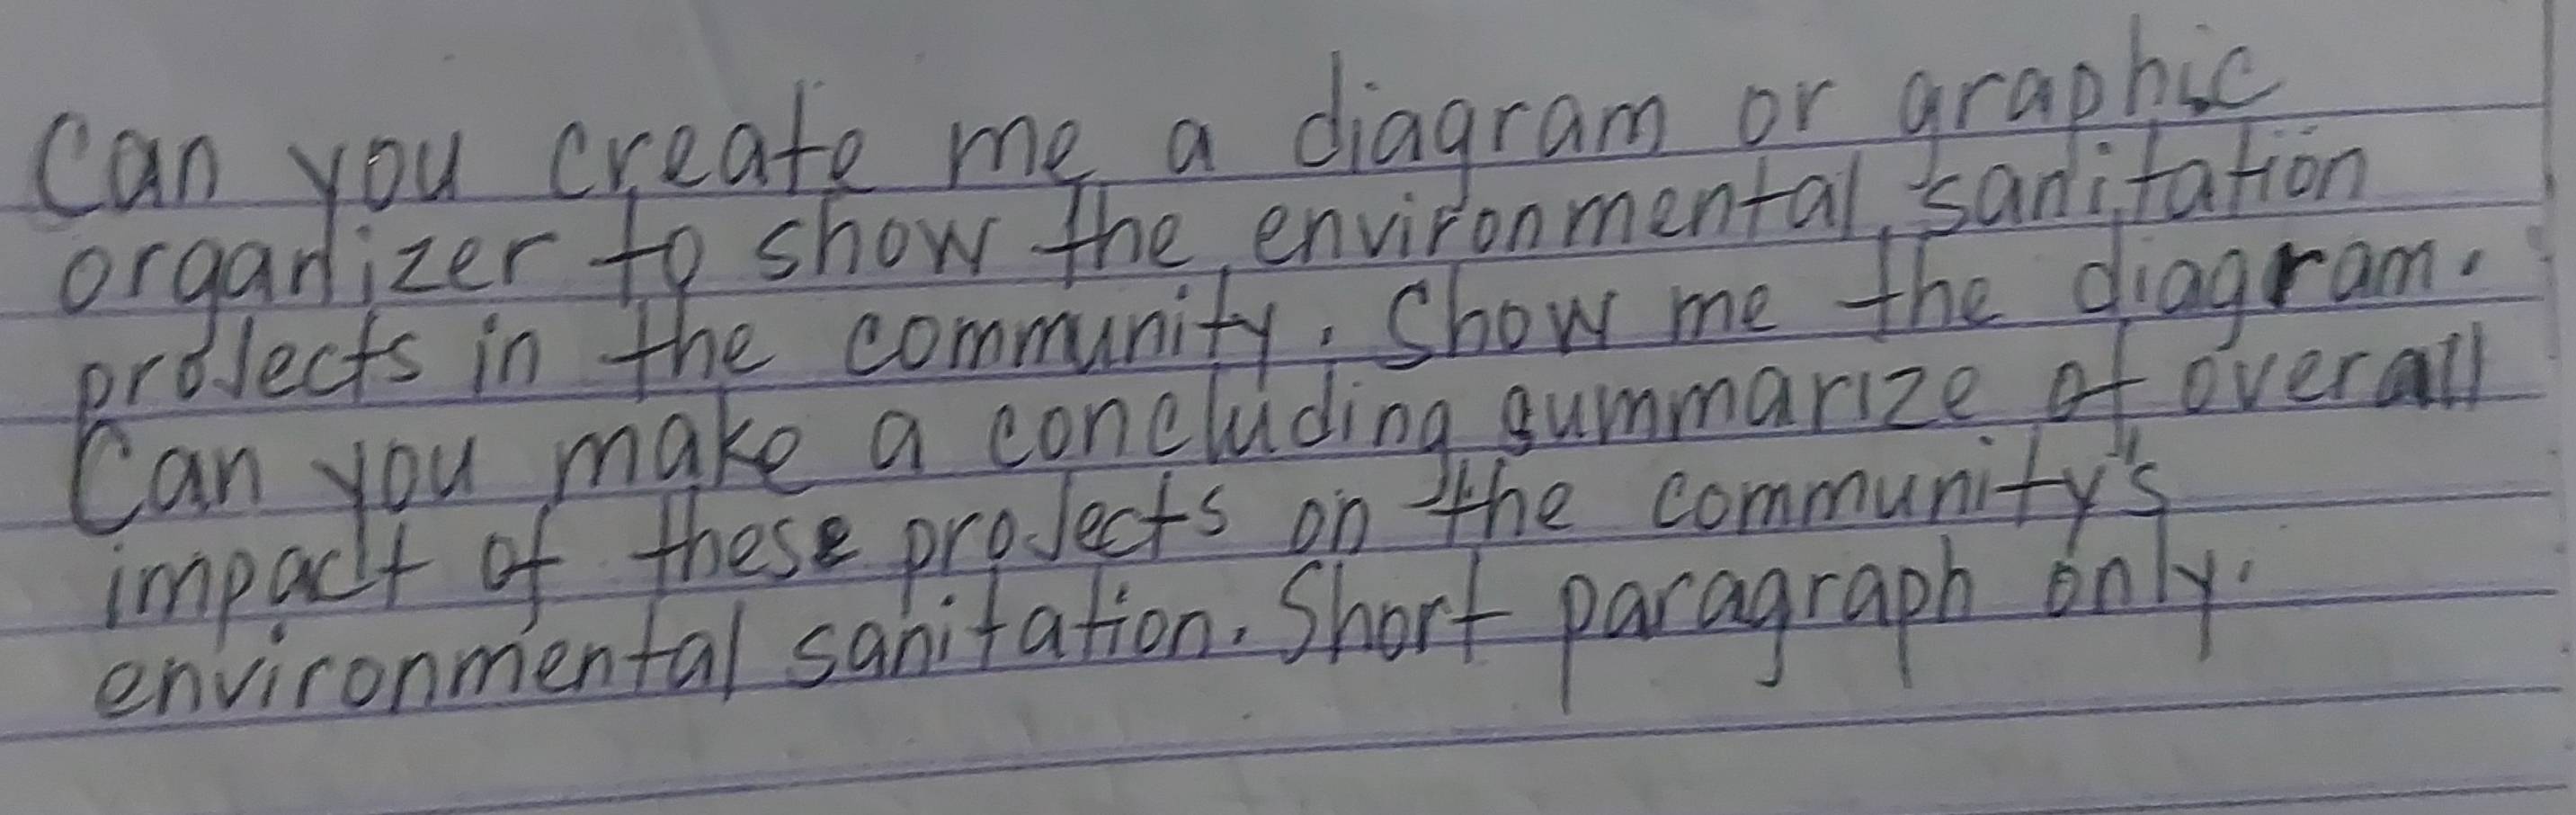 Can you create me a diagram or graphic
organizer to show the environmental sanitation
projects in the community. Show me the diagram.
Can you make a concluding summarize of overall
impact of these projects on the community's
environmental sanitation. Short paragraph only.